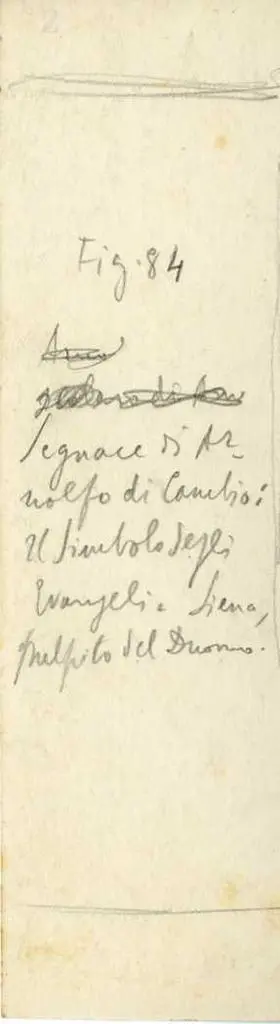 2
Fig. 84
Seguace di Ar-
nolfo di Cambio:
Il simbolo degli
Evangeli. Siena,
Pulpito del Duomo.